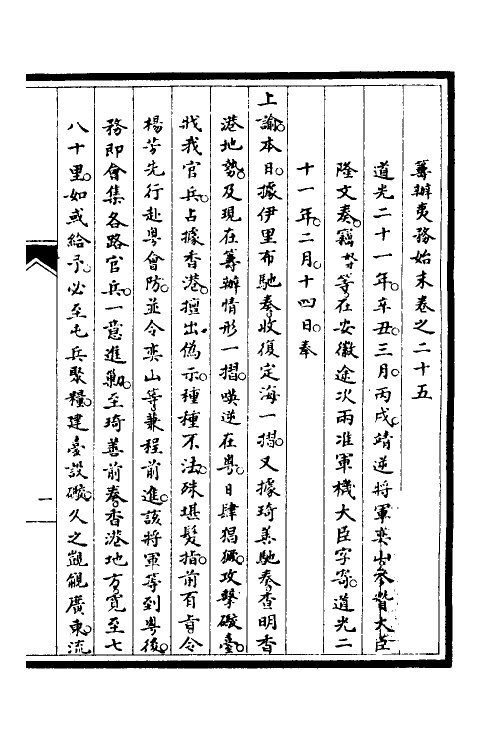 籌辦夷務始末卷之二十五
道光二十一年。辛丑。三月。丙戌。靖逆將軍奕山。參贊大臣
隆文奏。竊奴等在安徽途次。兩准軍機大臣字寄。道光二
十一年。二月。十四日。奉
上諭。本日。據伊里布馳奏收復定海一摺。又據琦善馳奏查明香
港地勢。及現在籌辦情形一摺。嘆逆在粵。日肆猖獗。攻擊礮臺。
戕我官兵。占據香港。擅出偽示。種種不法。殊堪髮指。前有旨令
楊芳先行赴粵會防。並令奕山等兼程前進。該將軍等到粵後。
務即會集各路官兵。一意進勦。至琦善前奏香港地方。寬至七
八十里。如或給予。必至屯兵聚糧。建臺設礮。久之覬覦廣東。流
一